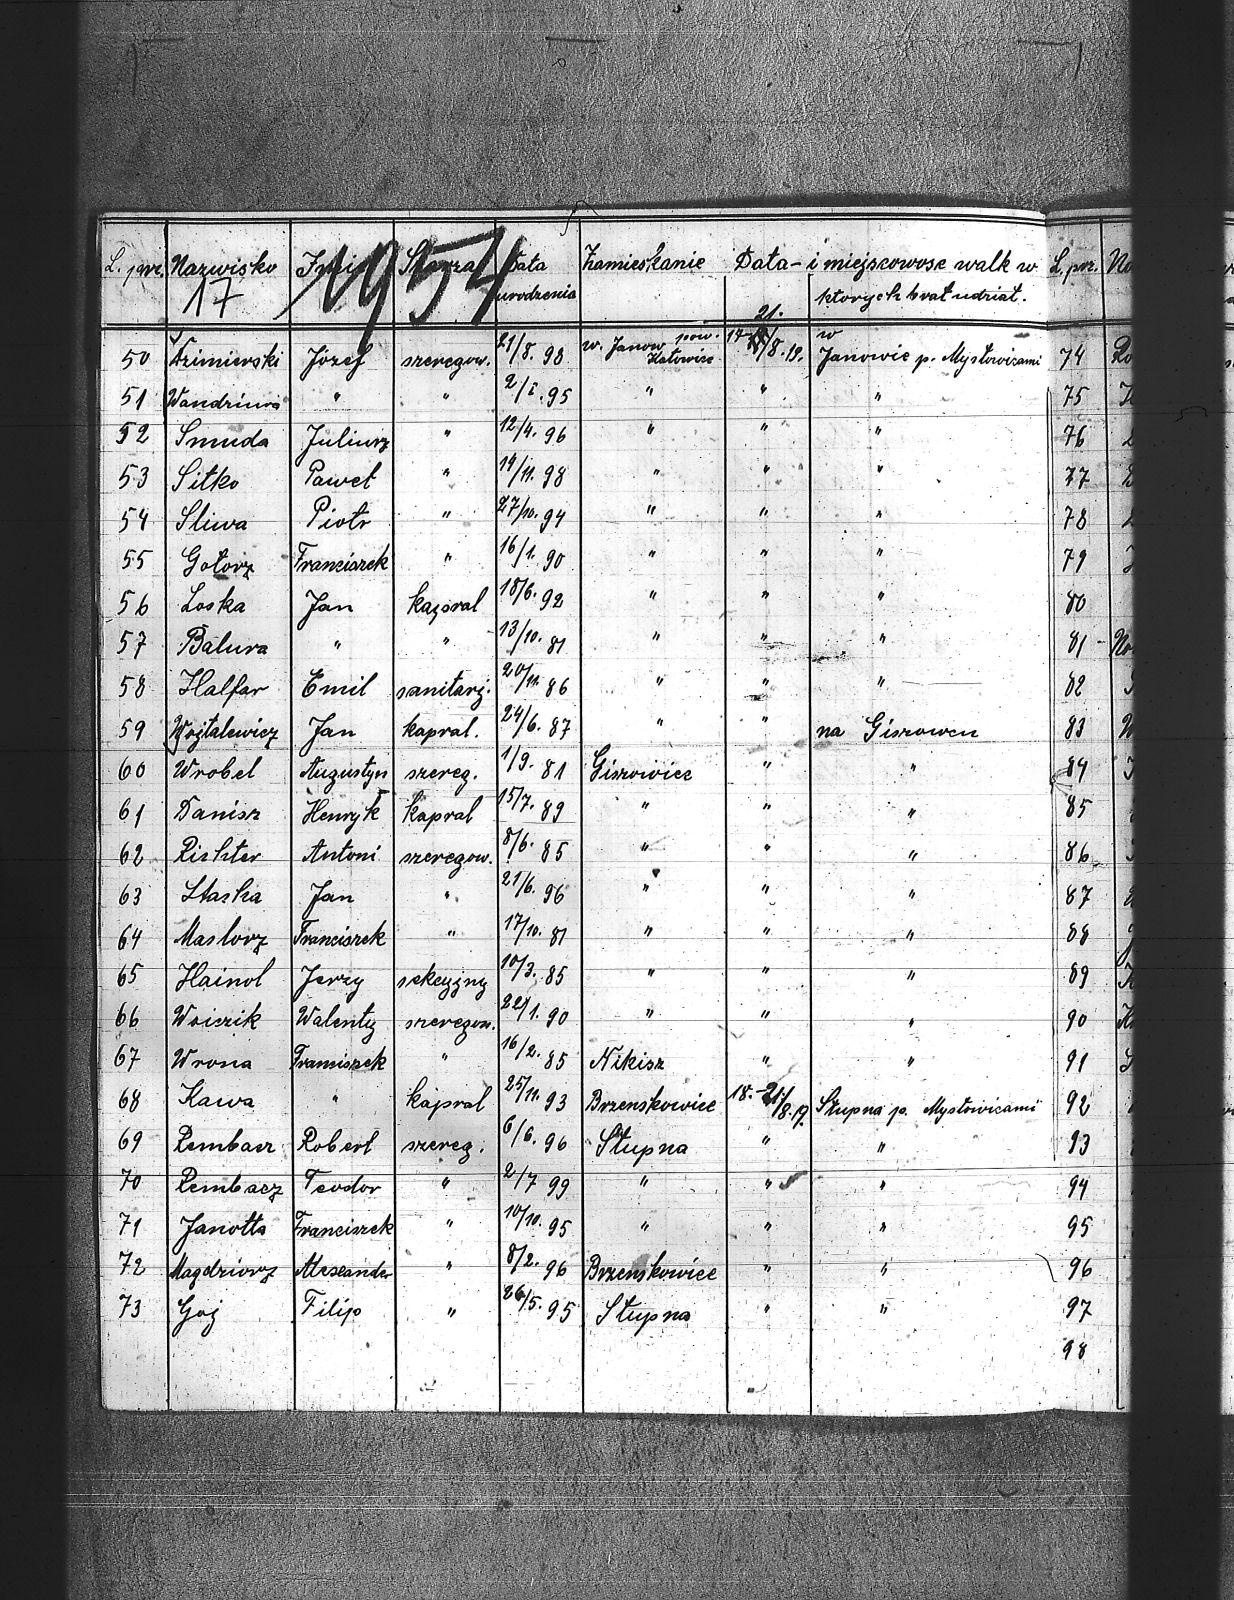 L. porz. Nazwisko Imię Szarża Data urodzenia Zamieszkanie Data - i miejscowosc walk w ktorych brał udział. L. prz. No
17 1954
50 Józef szeregow. 21/8. 98 w. Janow pow. Katowice 17-21./8. 19. w Janowie p. Mysłowicami 74
51 " " 95 " " " 75
52 Smuda Juliusz " 12/4. 96 " " " 76
53 Sitko Paweł " 14/11. 98 " " " 77
54 Sliwa Piotr " 27/10. 94 " " " 78
55 Franciszek " 16/1. 90 " " " 79
56 Loska Jan kapral 18/6. 92 " " " 80
57 Balura " " 13/10. 81 " " " 81
58 Halfar Emil sanitarj. 20/11. 86 " " " 82
59 Wojtalewicz Jan kapral. 24/6. 87 " " na Giszowcu 83
60 Wrobel Augustyn szereg. 1/9. 81 Giszowiec " " 84
61 Danisz Henryk kapral 15/7. 89 " " " 85
62 Richter Antoni szeregow. 8/6. 85 " " " 86
63 Staska Jan " 21/6. 96 " " " 87
64 Maslorz Franciszek " 17/10. 81 " " " 88
65 Hainol Jerzy sekcyjny 10/3. 85 " " " 89
66 Woiczik Walenty szeregow. 22/1. 90 " " " 90
67 Wrona Franciszek " 16/2. 85 Nikisz " " 91
68 Kawa " kapral 25/11. 93 Brzenskowice 18.-21/8.19. Słupna p. Mysłowicami 92
69 Rembacz Robert szereg. 6/6. 96 Słupna " " 93
70 Rembacz Teodor " 2/7 99 " " " 94
71 Janotta Franciszek " 10/10. 95 " " " 95
72 Magdziorz Alexander " 8/2. 96 Brzenskowice " " 96
73 Goj Filip " 26/5. 95 Słupna " " 97
98